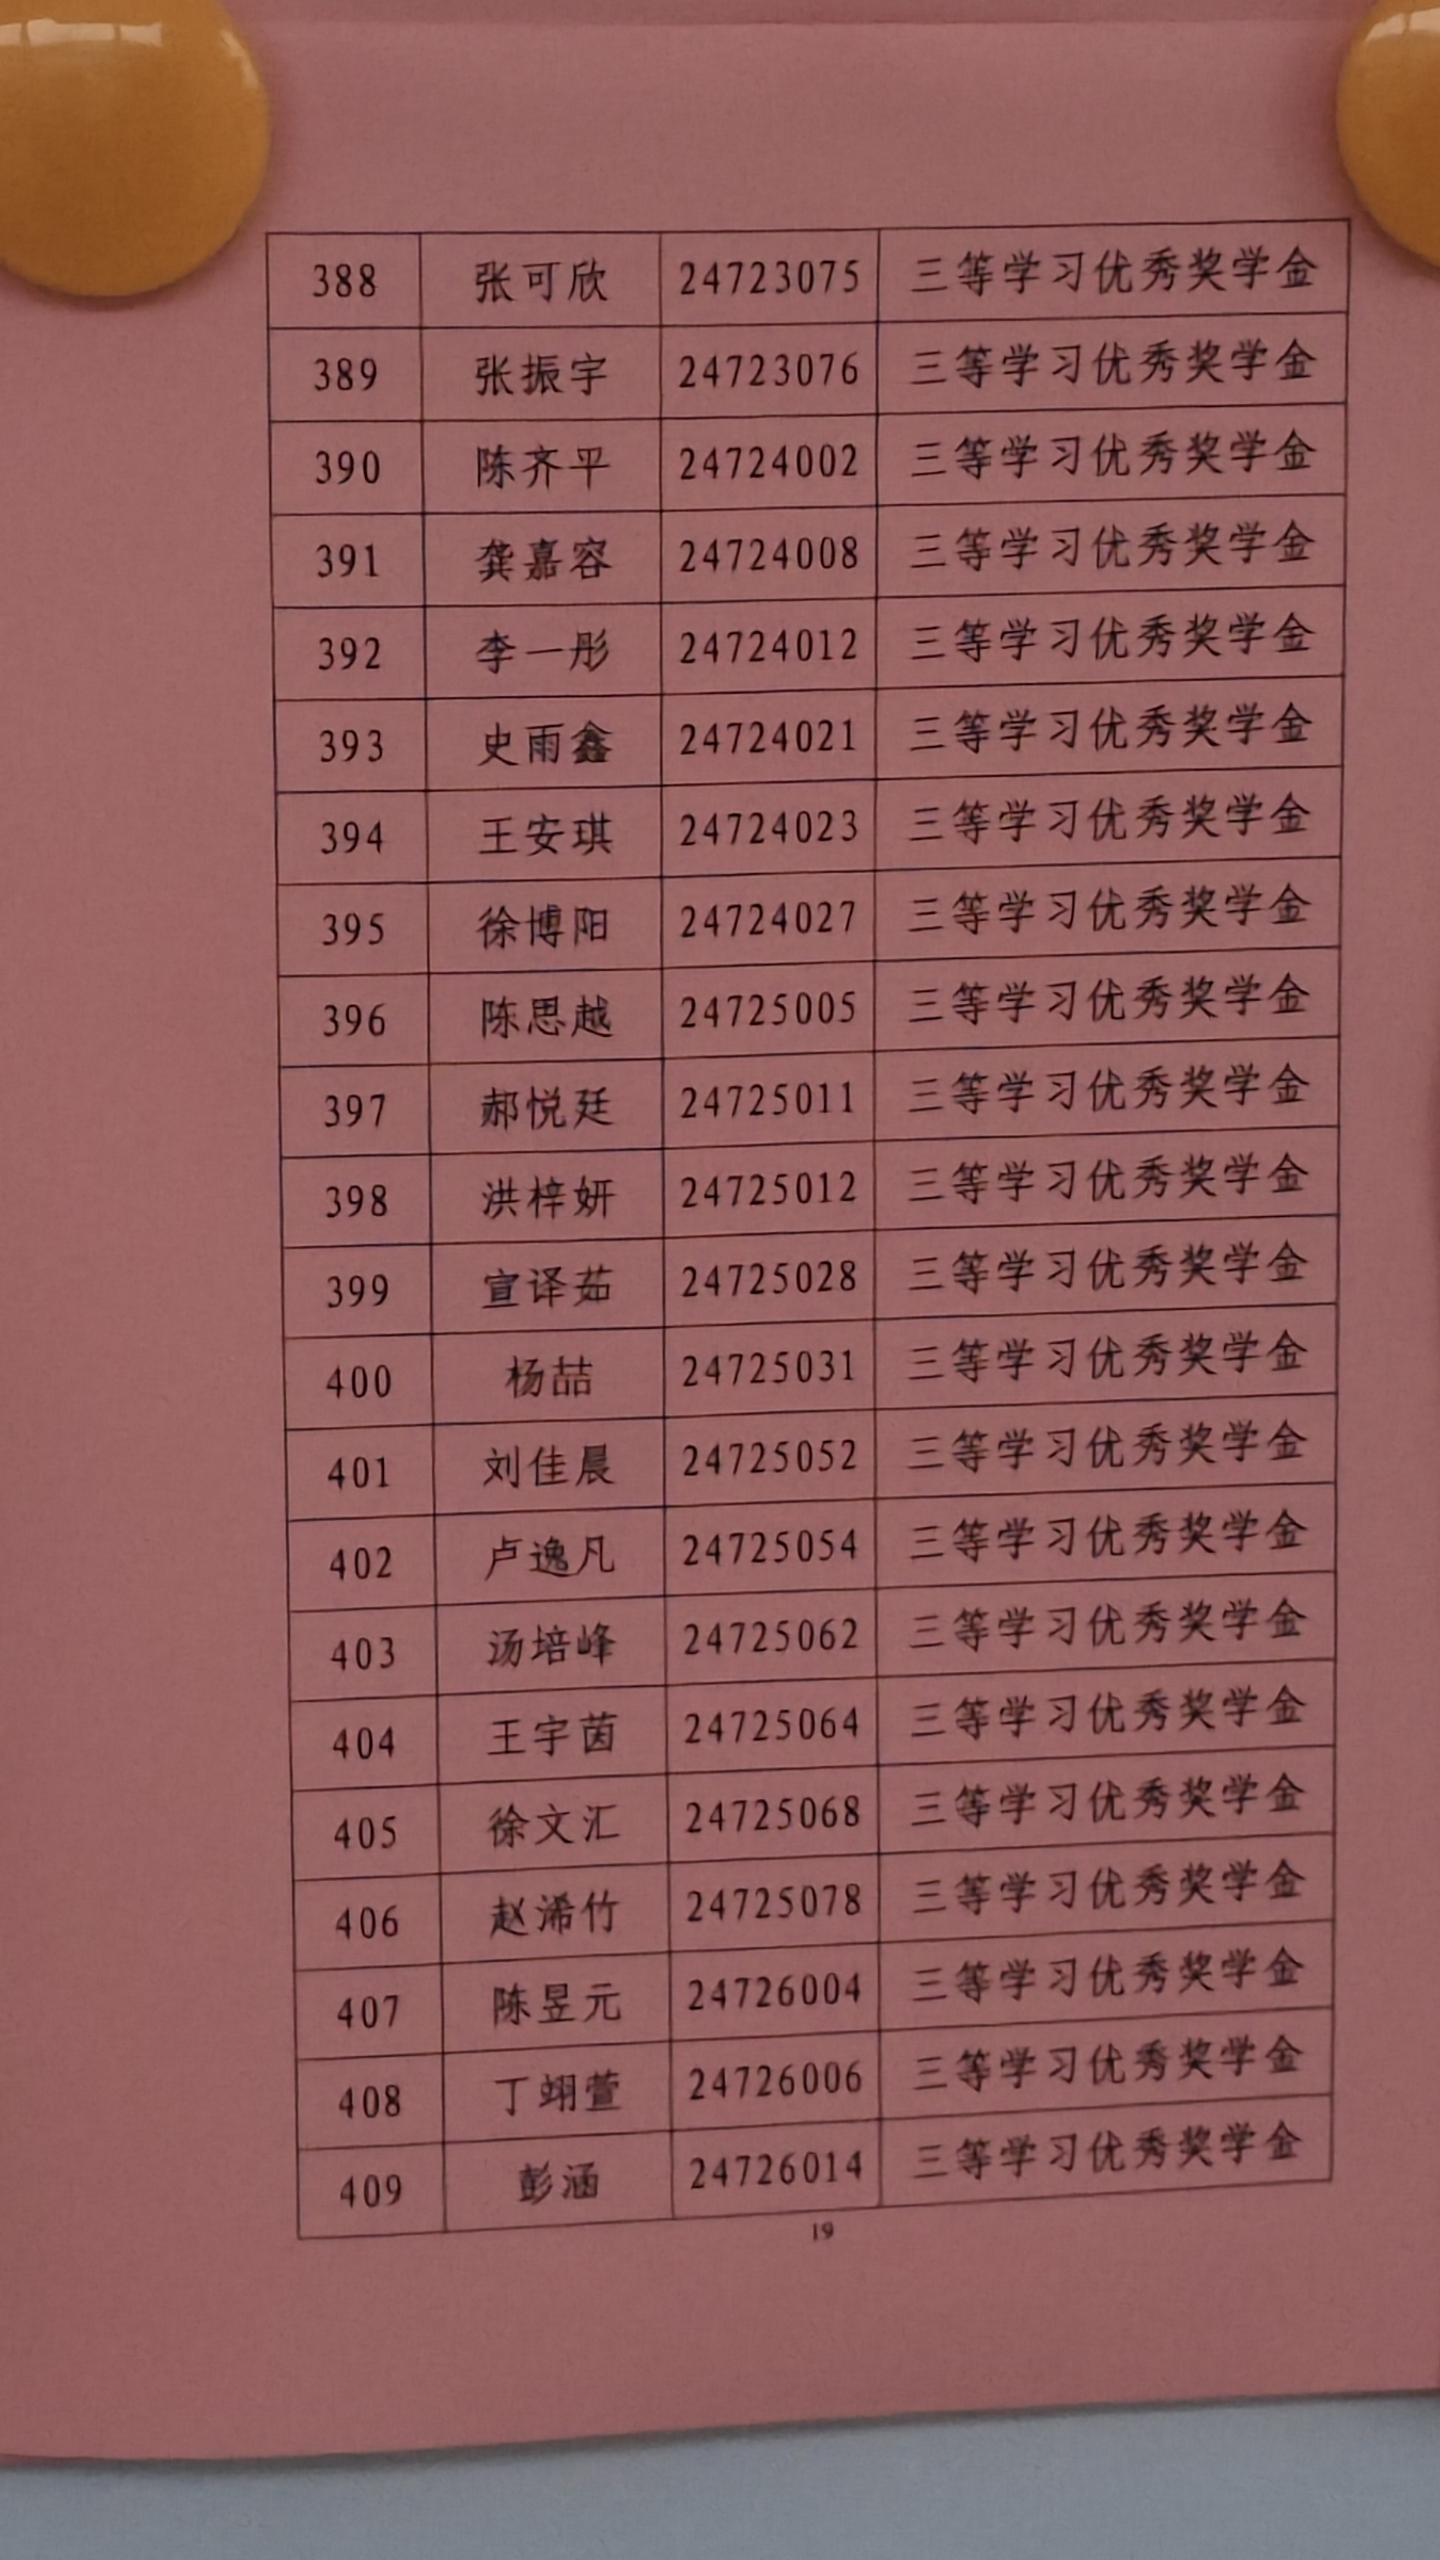 388 张可欣 24723075 三等学习优秀奖学金
389 张振宇 24723076 三等学习优秀奖学金
390 陈齐平 24724002 三等学习优秀奖学金
391 龚嘉容 24724008 三等学习优秀奖学金
392 李一彤 24724012 三等学习优秀奖学金
393 史雨鑫 24724021 三等学习优秀奖学金
394 王安琪 24724023 三等学习优秀奖学金
395 徐博阳 24724027 三等学习优秀奖学金
396 陈思越 24725005 三等学习优秀奖学金
397 郝悦廷 24725011 三等学习优秀奖学金
398 洪梓妍 24725012 三等学习优秀奖学金
399 宣译茹 24725028 三等学习优秀奖学金
400 杨喆 24725031 三等学习优秀奖学金
401 刘佳晨 24725052 三等学习优秀奖学金
402 卢逸凡 24725054 三等学习优秀奖学金
403 汤培峰 24725062 三等学习优秀奖学金
404 王宇茵 24725064 三等学习优秀奖学金
405 徐文汇 24725068 三等学习优秀奖学金
406 赵浠竹 24725078 三等学习优秀奖学金
407 陈昱元 24726004 三等学习优秀奖学金
408 丁翊萱 24726006 三等学习优秀奖学金
409 彭涵 24726014 三等学习优秀奖学金
19